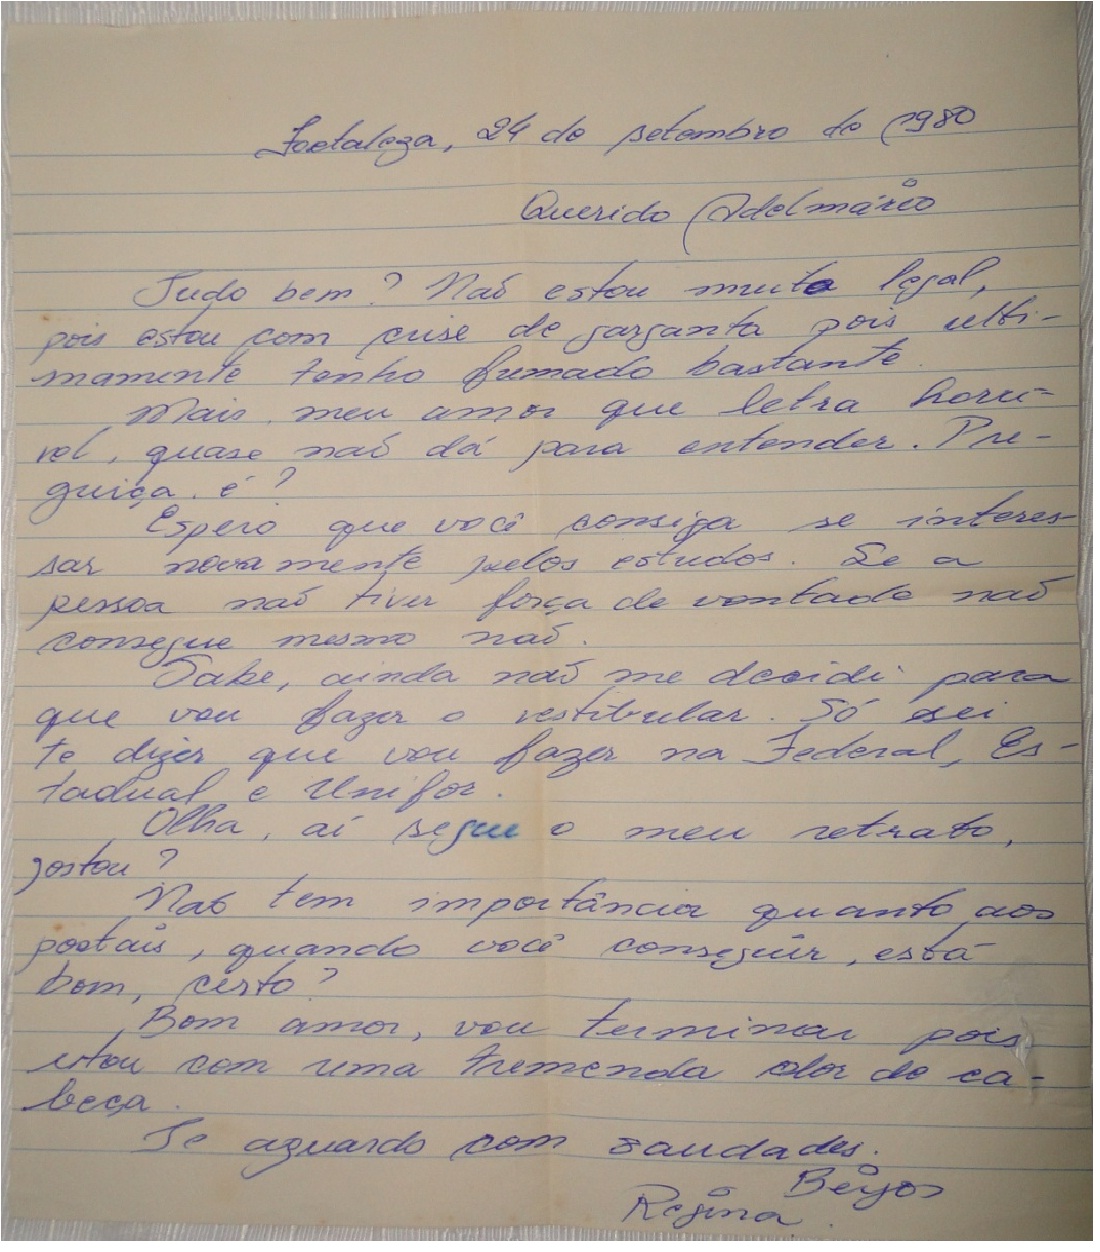 Fortaleza, 24 de setembro de 1980
Querido Adelmário
Tudo bem? Não estou muito legal,
pois estou com crise de garganta pois ulti-
mamente tenho fumado bastante.
Mais, meu amor que letra horri-
vel, quase não dá para entender. Pre-
guiça, é?
Espero que você consiga se interes
sar novamente pelos estudos. Se a
pessoa não tiver força de vontade não
consegue mesmo não.
Sabe, ainda não me decidi para
que vou fazer o vestibular. Só sei
te dizer que vou fazer na Federal, Es-
tadual e Unifor.
Olha, aí segue o meu retrato,
gostou?
Não tem importância quanto aos
postais, quando você conseguir, está
bom, certo?
Bom amor, vou terminar pois
estou com uma tremenda dor de ca-
beça.
Te aguardo com saudades.
Beijos
Regina.